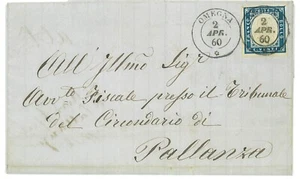 OMEGNA
2
APR.
60
2
APR.
60
All' Illmo Sigr
Avvto Fiscale presso il Tribunale
del Circondario di
Pallanza